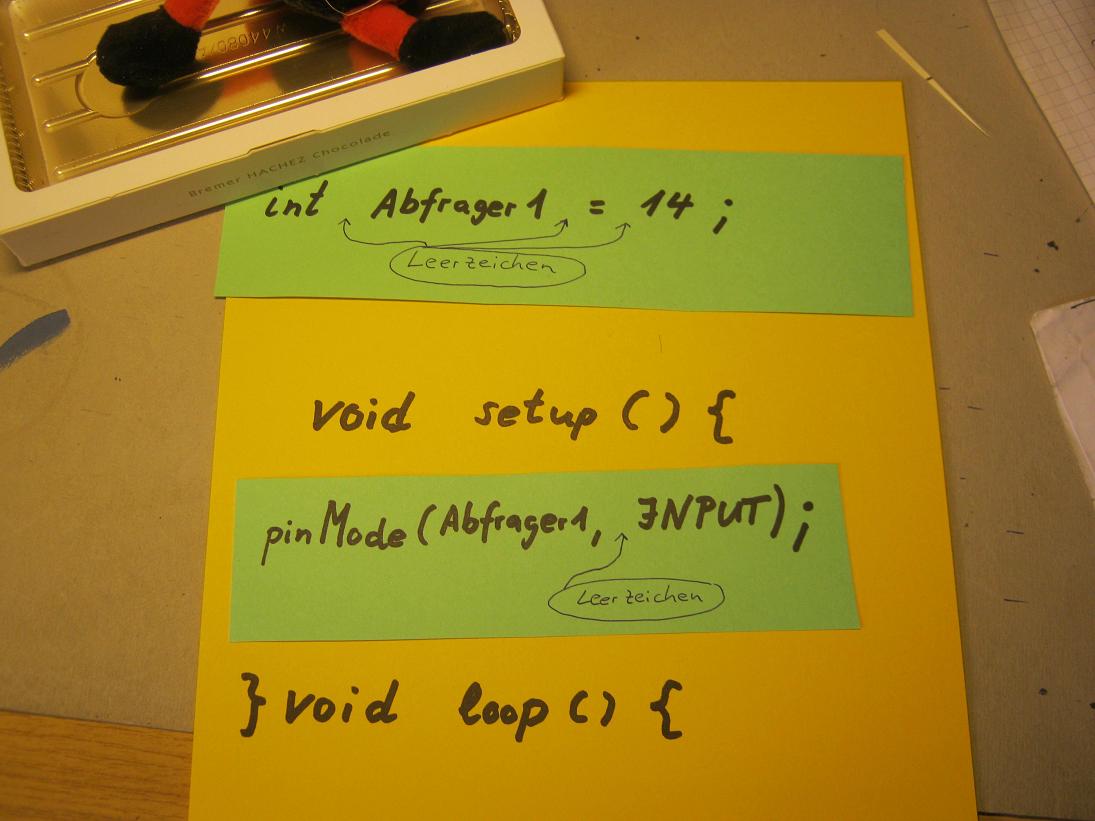 Bremer HACHEZ Chocolade
int Abfrager1 = 14 ;
Leerzeichen
void setup () {
pinMode (Abfrager1, INPUT) ;
Leerzeichen
} void loop () {